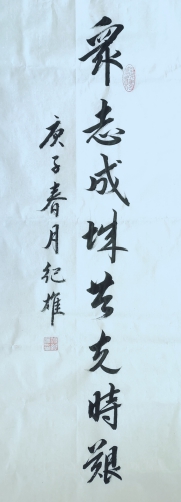 眾志成城共克時艱
庚子春月紀雄